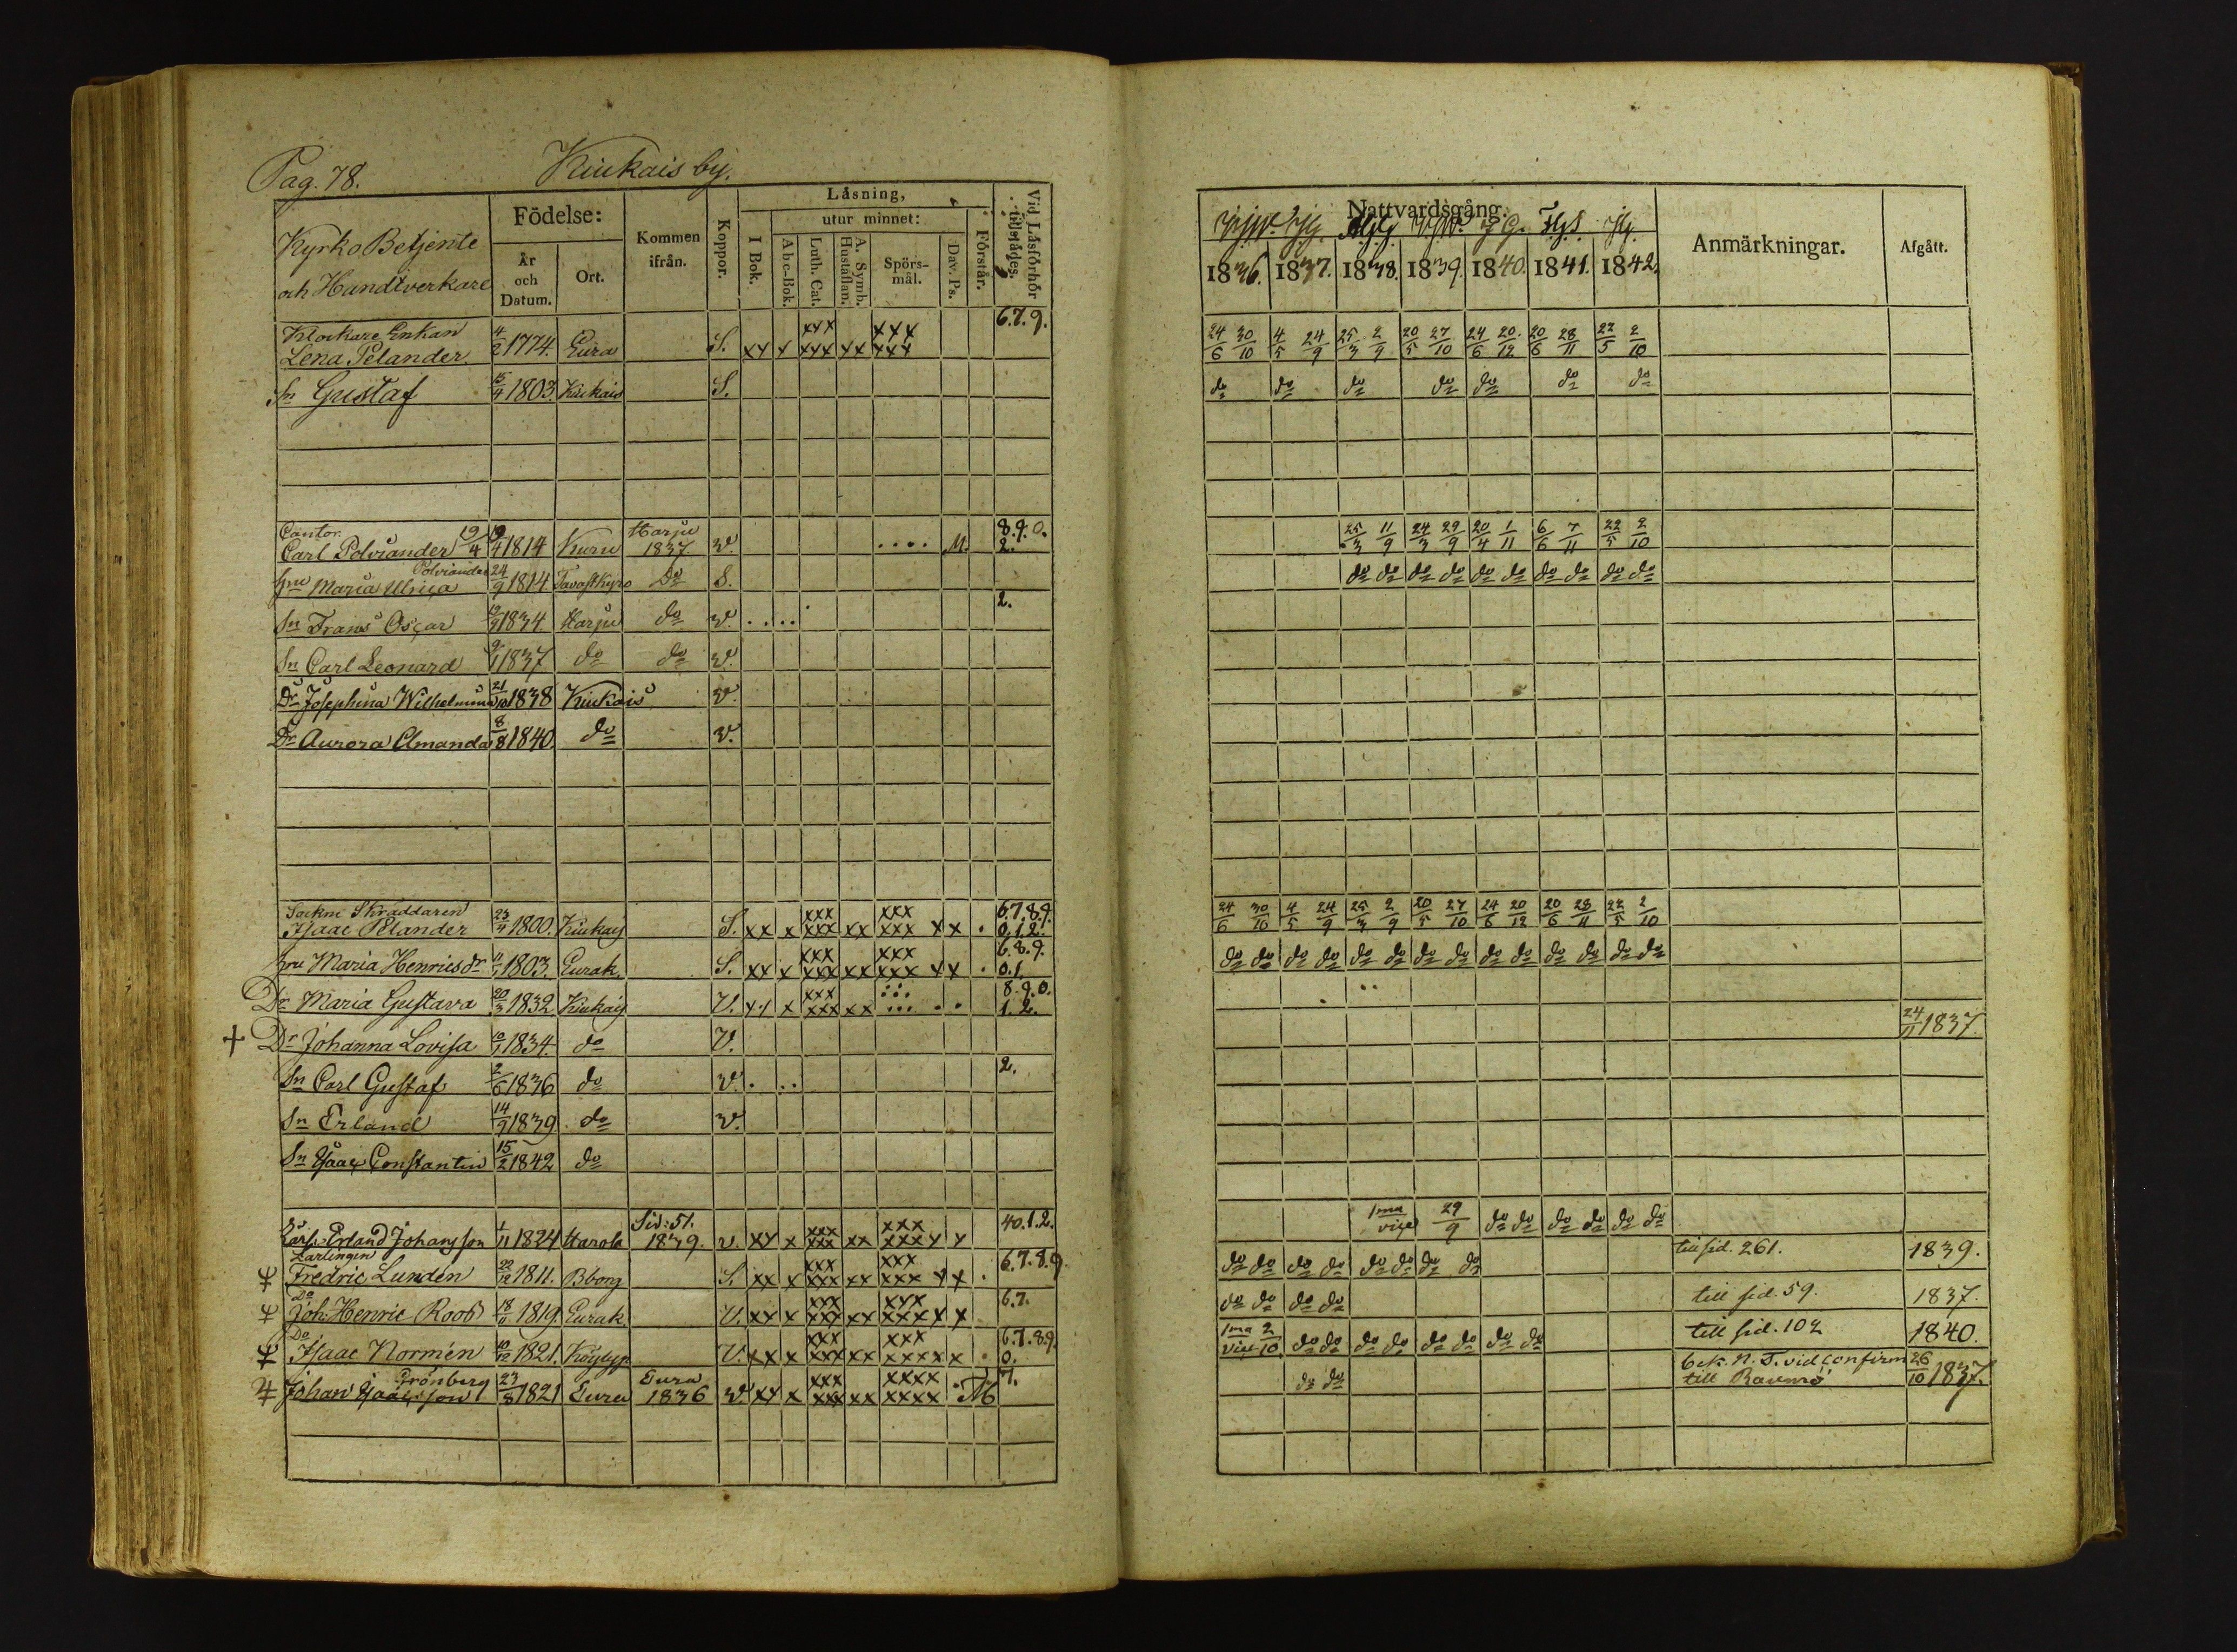 Pag. 78. Kiukais by.
Kyrko Betjente
och Handtverkare
Födelse:
År och Datum.
Ort.
Kommen ifrån.
Koppor.
Läsning,
I Bok.
utur minnet:
Abc-Bok.
Luth. Cat.
A. Symb. Hustaflan.
Spörs-mål.
Dav. Ps.
Förstår.
Vid Läsförhör tillstädes.
Nattvardsgång.
1836. 1837. 1838. 1839. 1840. 1841. 1842.
Anmärkningar.
Afgått.
Klockare Enkan 6.7.9.
Lena Pelander 4/2 1774. Eura S. xx x xxx xx xxx 24/6 30/10 4/5 24/9 25/3 2/9 20/5 27/10 24/6 20/12 20/6 28/11 22/5 2/10
Sn Gustaf 1803 Kiukais S. do do do do do do do
Cantor 19/4 Harju 8.9.0.
Carl Polviander 1814 Kuru 1837 v. .... M. 2. 25/3 11/9 24/3 29/9 20/4 1/11 6/6 7/11 22/5 2/10
Polviander
Hru Maria Ulrica 24/9 1814 Tavastkyro Do S. do do do do do do do do do do
Sn Frans Oscar 1834 Harju do v. .... 2.
Sn Carl Leonard 1837 do do v.
Dr Josephina Wilhelmina 21/10 1838 Kiukais v.
Dr Aurora Amanda 8/8 1840. do v.
Sockne Skräddaren xxx xxx 6.7.8.9.
Isaac Pelander 23/4 1800. Kiukais S. xx x xxx xx xxx xx . 0.1.2. 24/6 30/10 4/5 24/9 25/3 2/9 20/5 27/10 24/6 20/12 20/6 28/11 22/5 2/10
xxx xxx 6.8.9.
Hru Maria Henricsdr 1803. Eurak. S. xx x xxx xx xxx xx . 0.1. do do do do do do do do do do do do do do
xxx 8.9.0.
Dr Maria Gustava 20/3 1832 Kiukais V. xx x xxx xx ... .. 1.2.
+ Dr Johanna Lovisa 1834. do V. 24/11 1837.
Sn Carl Gustaf 2/6 1836 do v. . .. 2.
Sn Erland 14/9 1839 do v.
Sn Isaac Constantin 15/2 1842 do
Sid: 51. xxx xxx 40.1.2.
Lärl. Erland Johansson 1/11 1824 Harola 1839. v. xx x xxx xx xxx x x 1ma vice 29/9 do do do do do do
Lärlingen xxx xxx 6.7.8.9.
Fredric Lundén 22/12 1811. Bborg S. xx x xxx xx xxx xx . do do do do do do do do till sid. 261. 1839.
Do xxx xxx 6.7.
Joh: Henric Roos 1819. Eurak. V. xx x xxx xx xxx x x do do do do till sid. 59. 1837.
Do xxx xxx 6.7.8.9.
Isaac Normén 1821. V. xx x xxx xx xxxx x . 0. 1ma vice 2/10 do do do do do do do do till sid. 102 1840.
Grönberg Eura xxx xxxx 7. bek. N. T. vid confirm
Johan Isaacsson 23/8 1821 Eura 1836 v. xx x xxx xx xxxx . M do do till Raumo 26/10 1837.